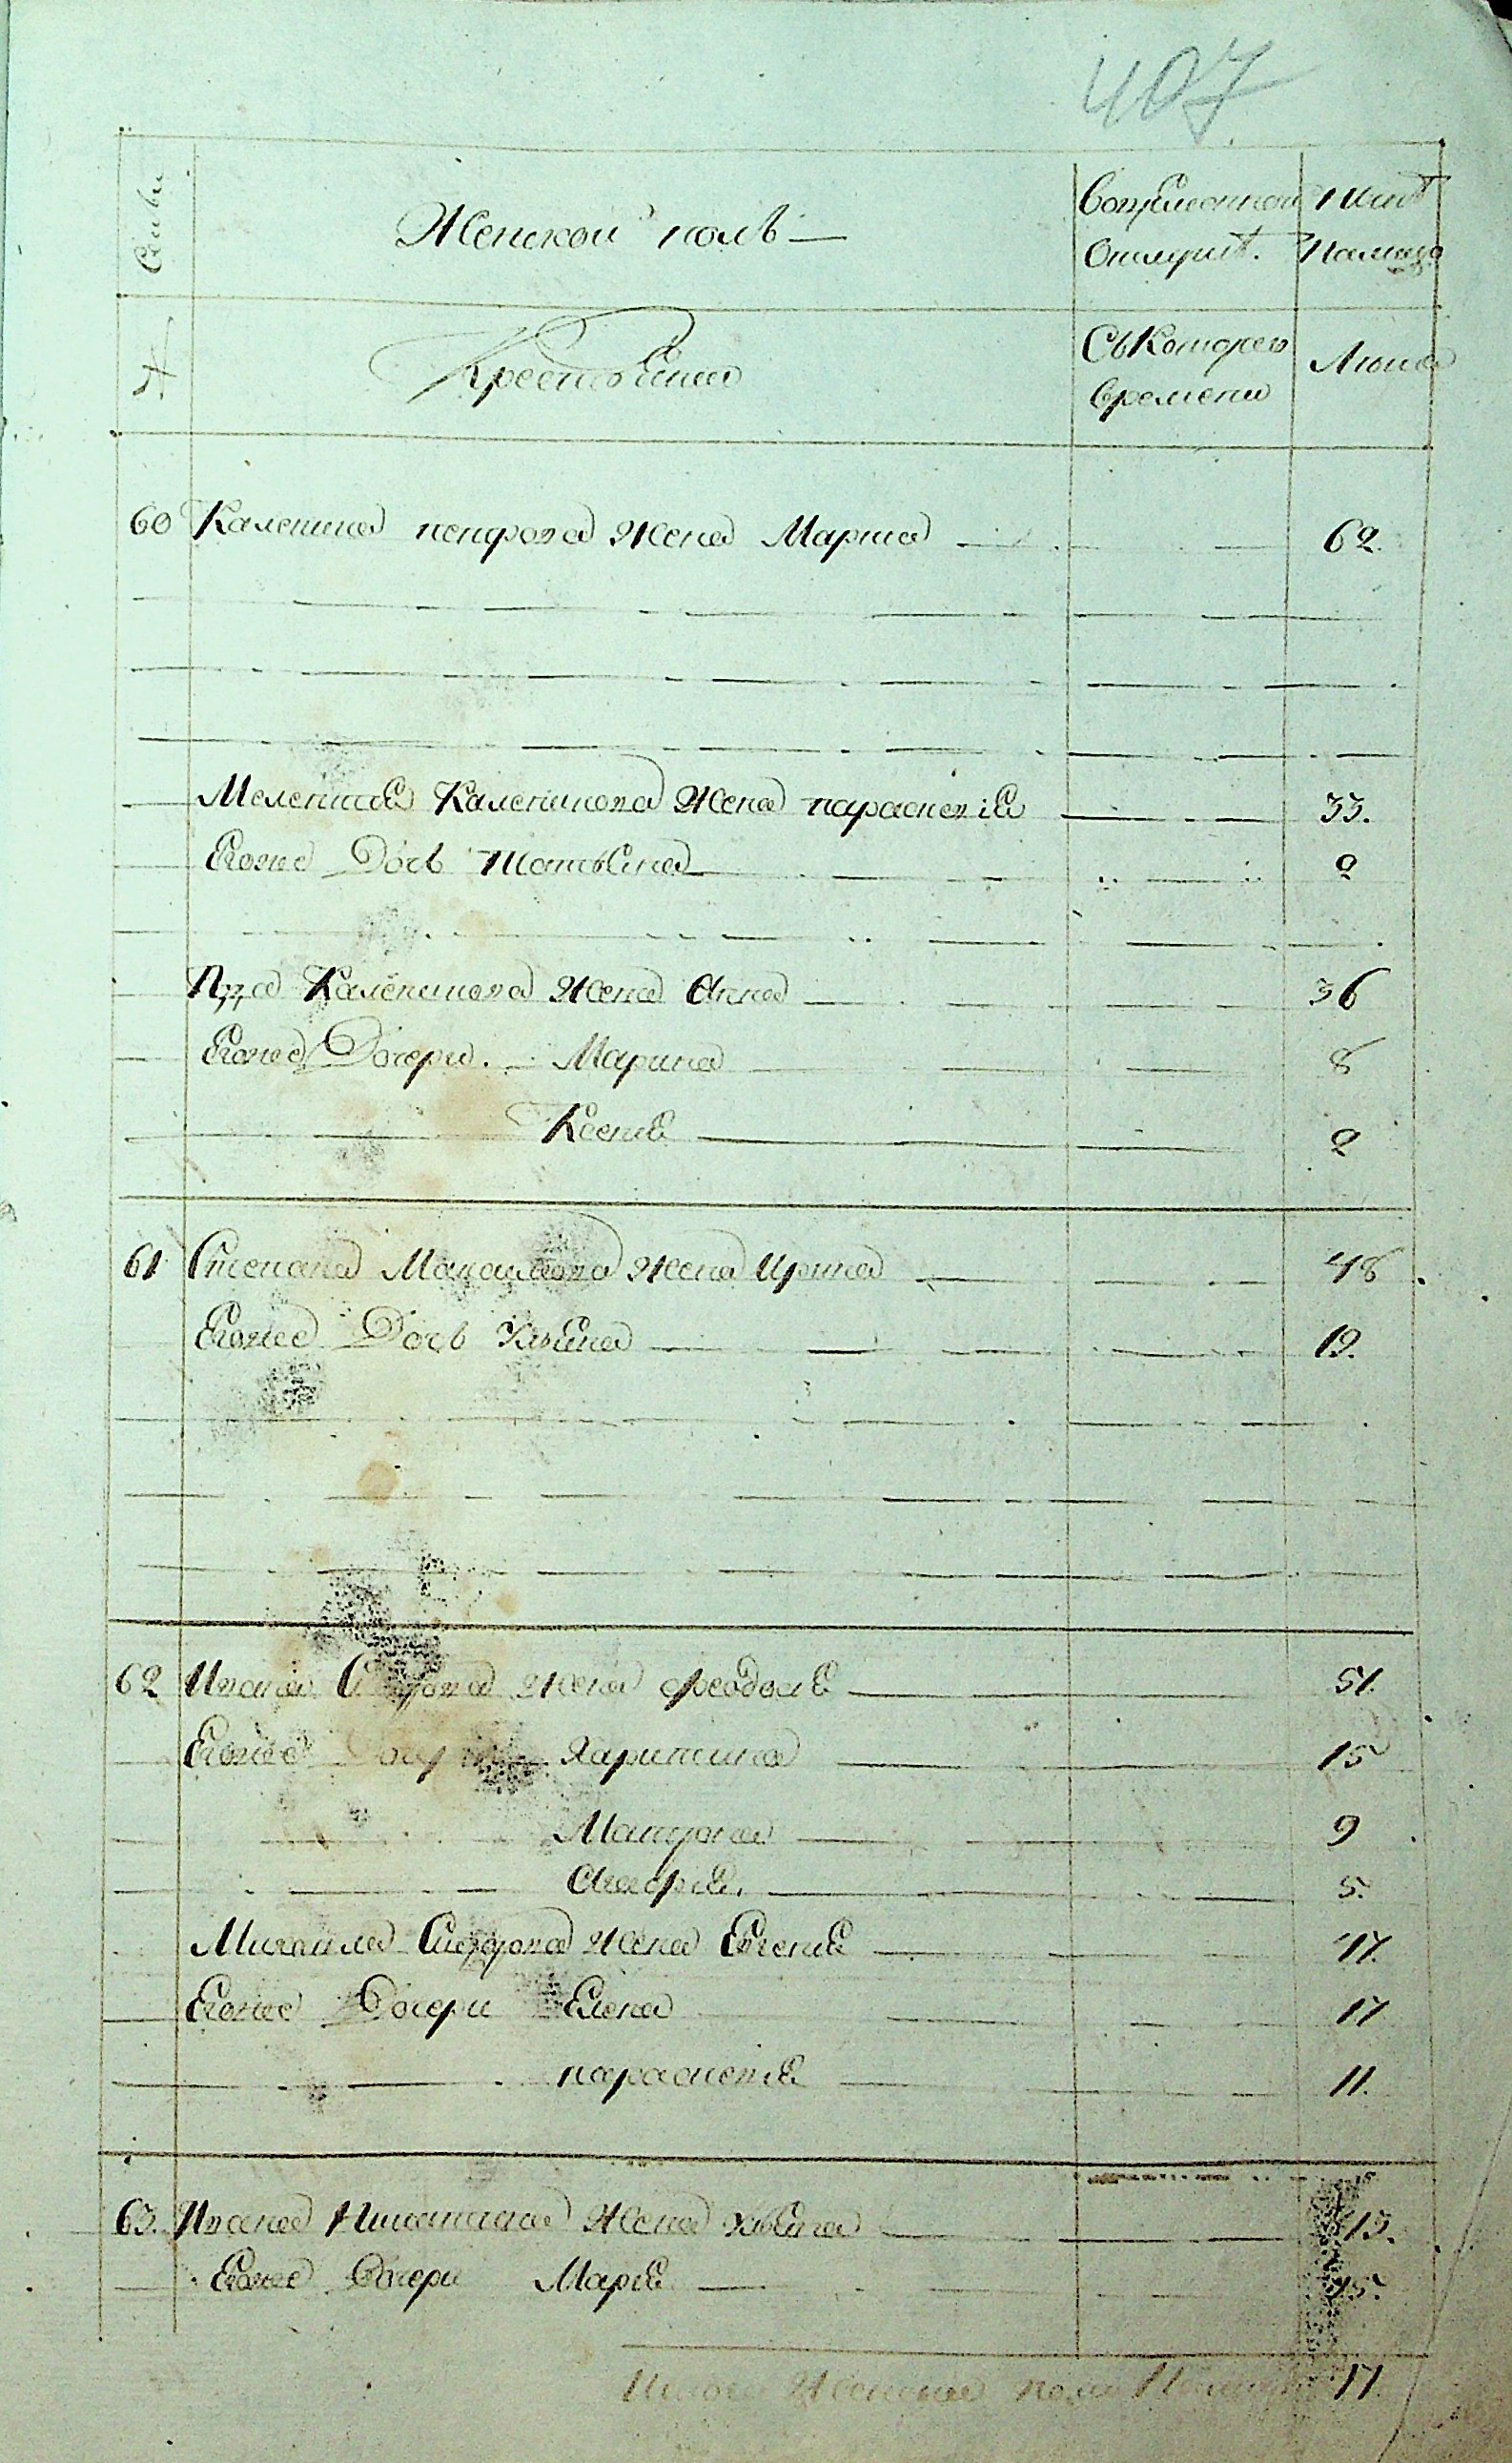 407
Семьи
Женской полъ
Во временной
Отлучкѣ.
Ныне
Налицо
№
Крестьяне
Съ которого
времени
Лѣта
60 Каленика никифорова жена Марина 62.
Мелентия Каленикова жена параскевiя 33.
Еюже Дочь Татьяна 2
Луки Каленикова жена Анна 36
Еюже Дочери. Марина 8
Ксения 2
61 Степана Максимова жена Ирина 48
Еюже Дочь Ульяна 19.
62 Ивана жена феодосия 51.
Еюже Дочери Харитина 15
Матрона 9
Агафия. 5.
Михаила Сидорова жена Евгения 47.
Еюже Дочери Елена 17
параскевия 11.
63. Ивана жена Ульяна
Еюже Дочери Мария 15.
Итого Женска пола Налицо 17.